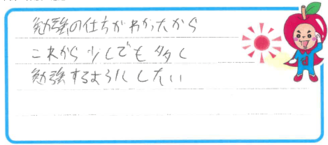 勉強の仕方がわかったから
これから少しでも多く
勉強するようにしたい